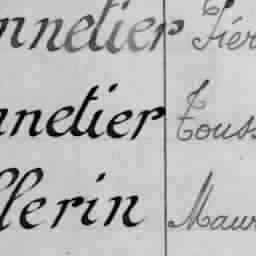 nnetier Piér
nnetier Touss
llerin Maur